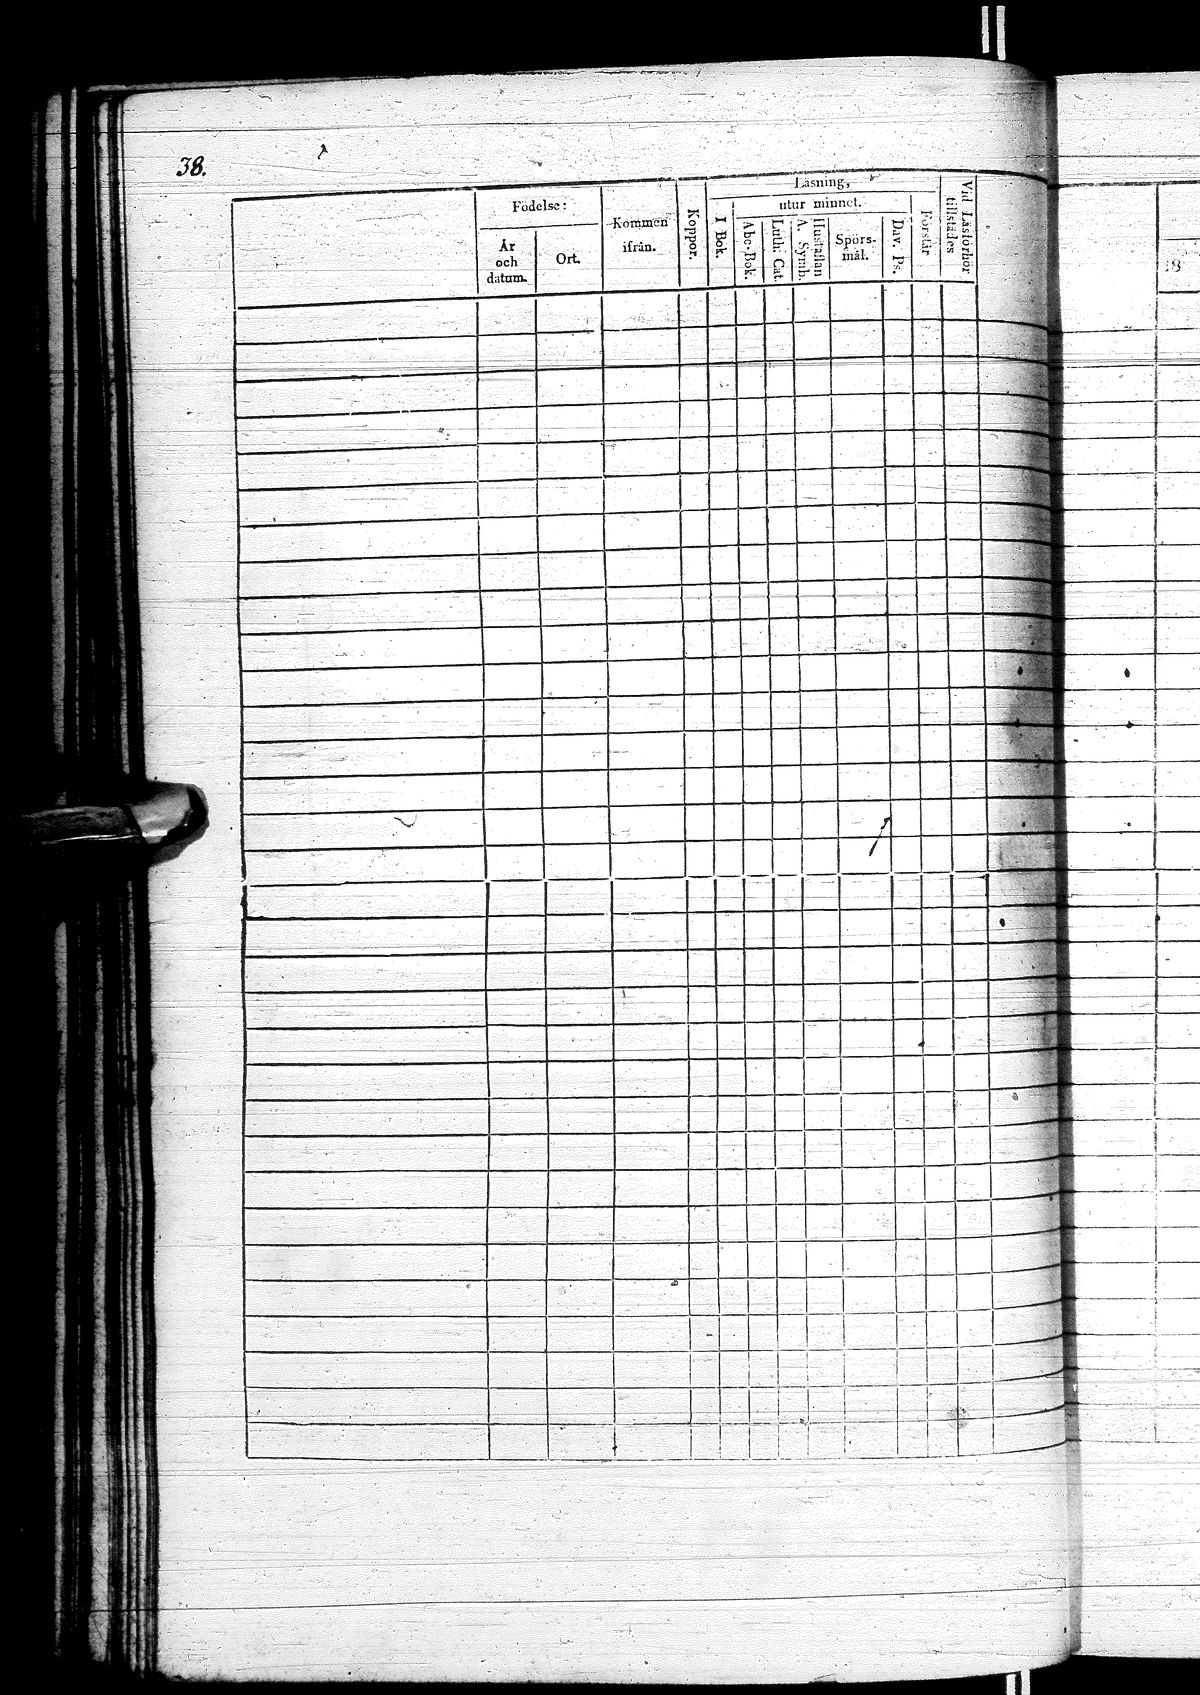 38.
Födelse:
År
och
datum.
Ort.
Kommen
ifrån.
Koppor.
Läsning,
utur minnet.
I Bok.
Abc-Bok.
Luth. Cat.
Hustaflan
A. Symb.
Spörs-
mål.
Dav. Ps.
Förstår
Vid Läsförhör
tillstädes
18